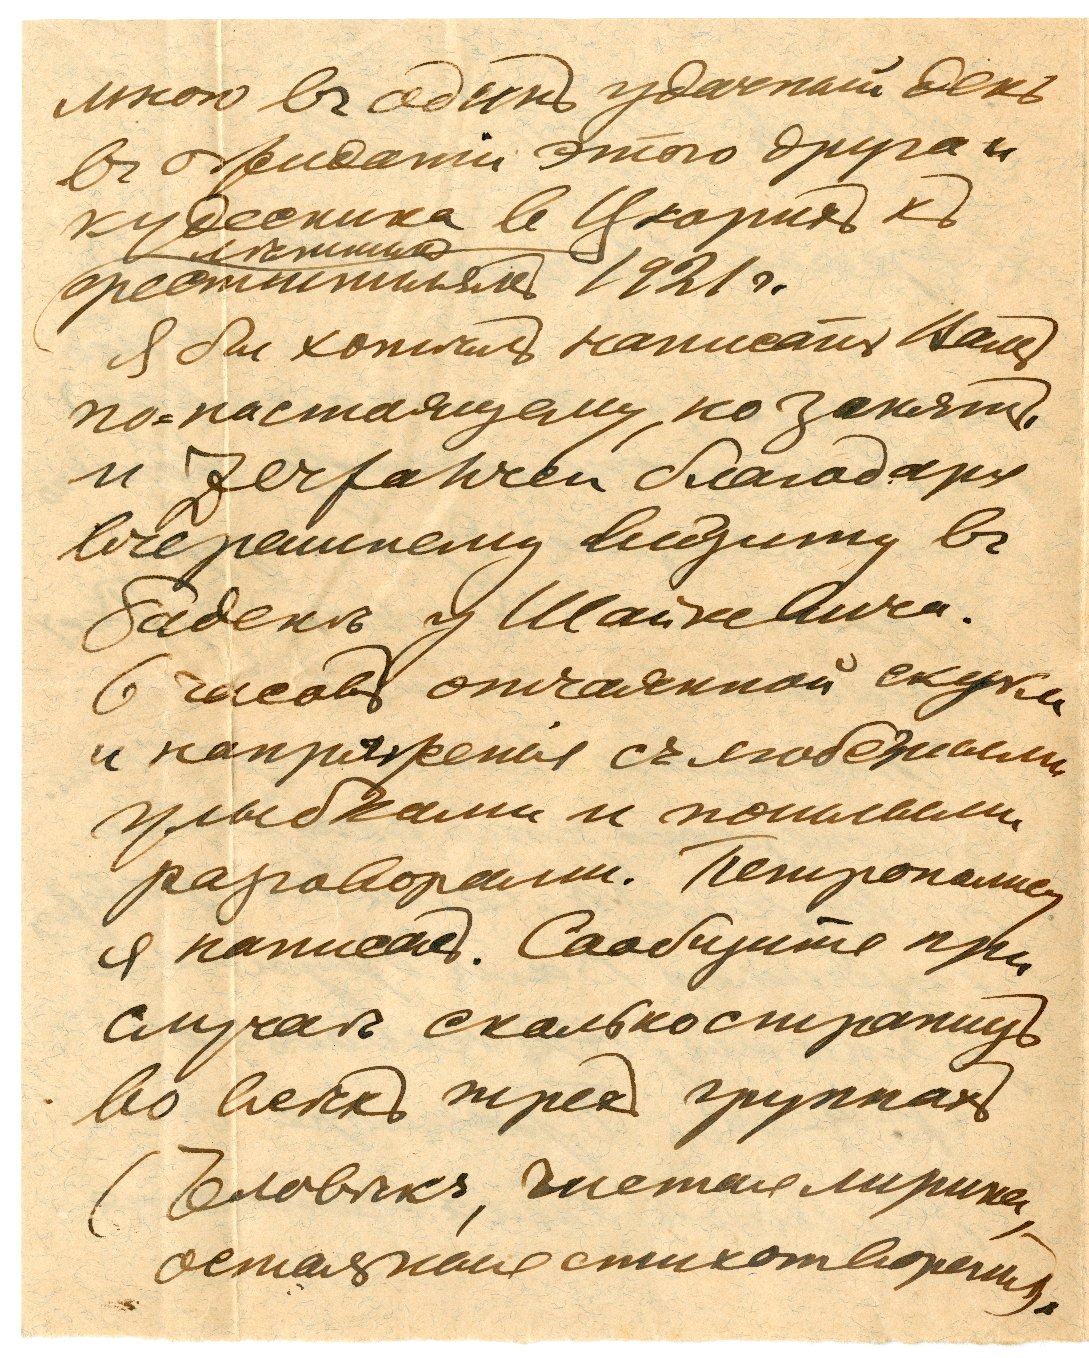 мною въ одинъ удачный день
въ ожиданіи этого друга и
кудесника в Цюрихѣ къ
лѣтнимъ
фестшпилямъ 1921 г.
Я бы хотѣлъ написать Вамъ
по-настоящему, но занятъ
и zerfahren благодаря
вчерашнему визиту въ
Баденъ у Шайкевича.
6 часовъ отчаянной скуки
и напряженія съ любезными
улыбками и пошлыми
разговорами. Петрополису
я написалъ. Сообщите при
случаѣ сколько страницъ
во всѣхъ трехъ группахъ
(Человѣкъ, чистая лирика,
остальные стихотворенія).